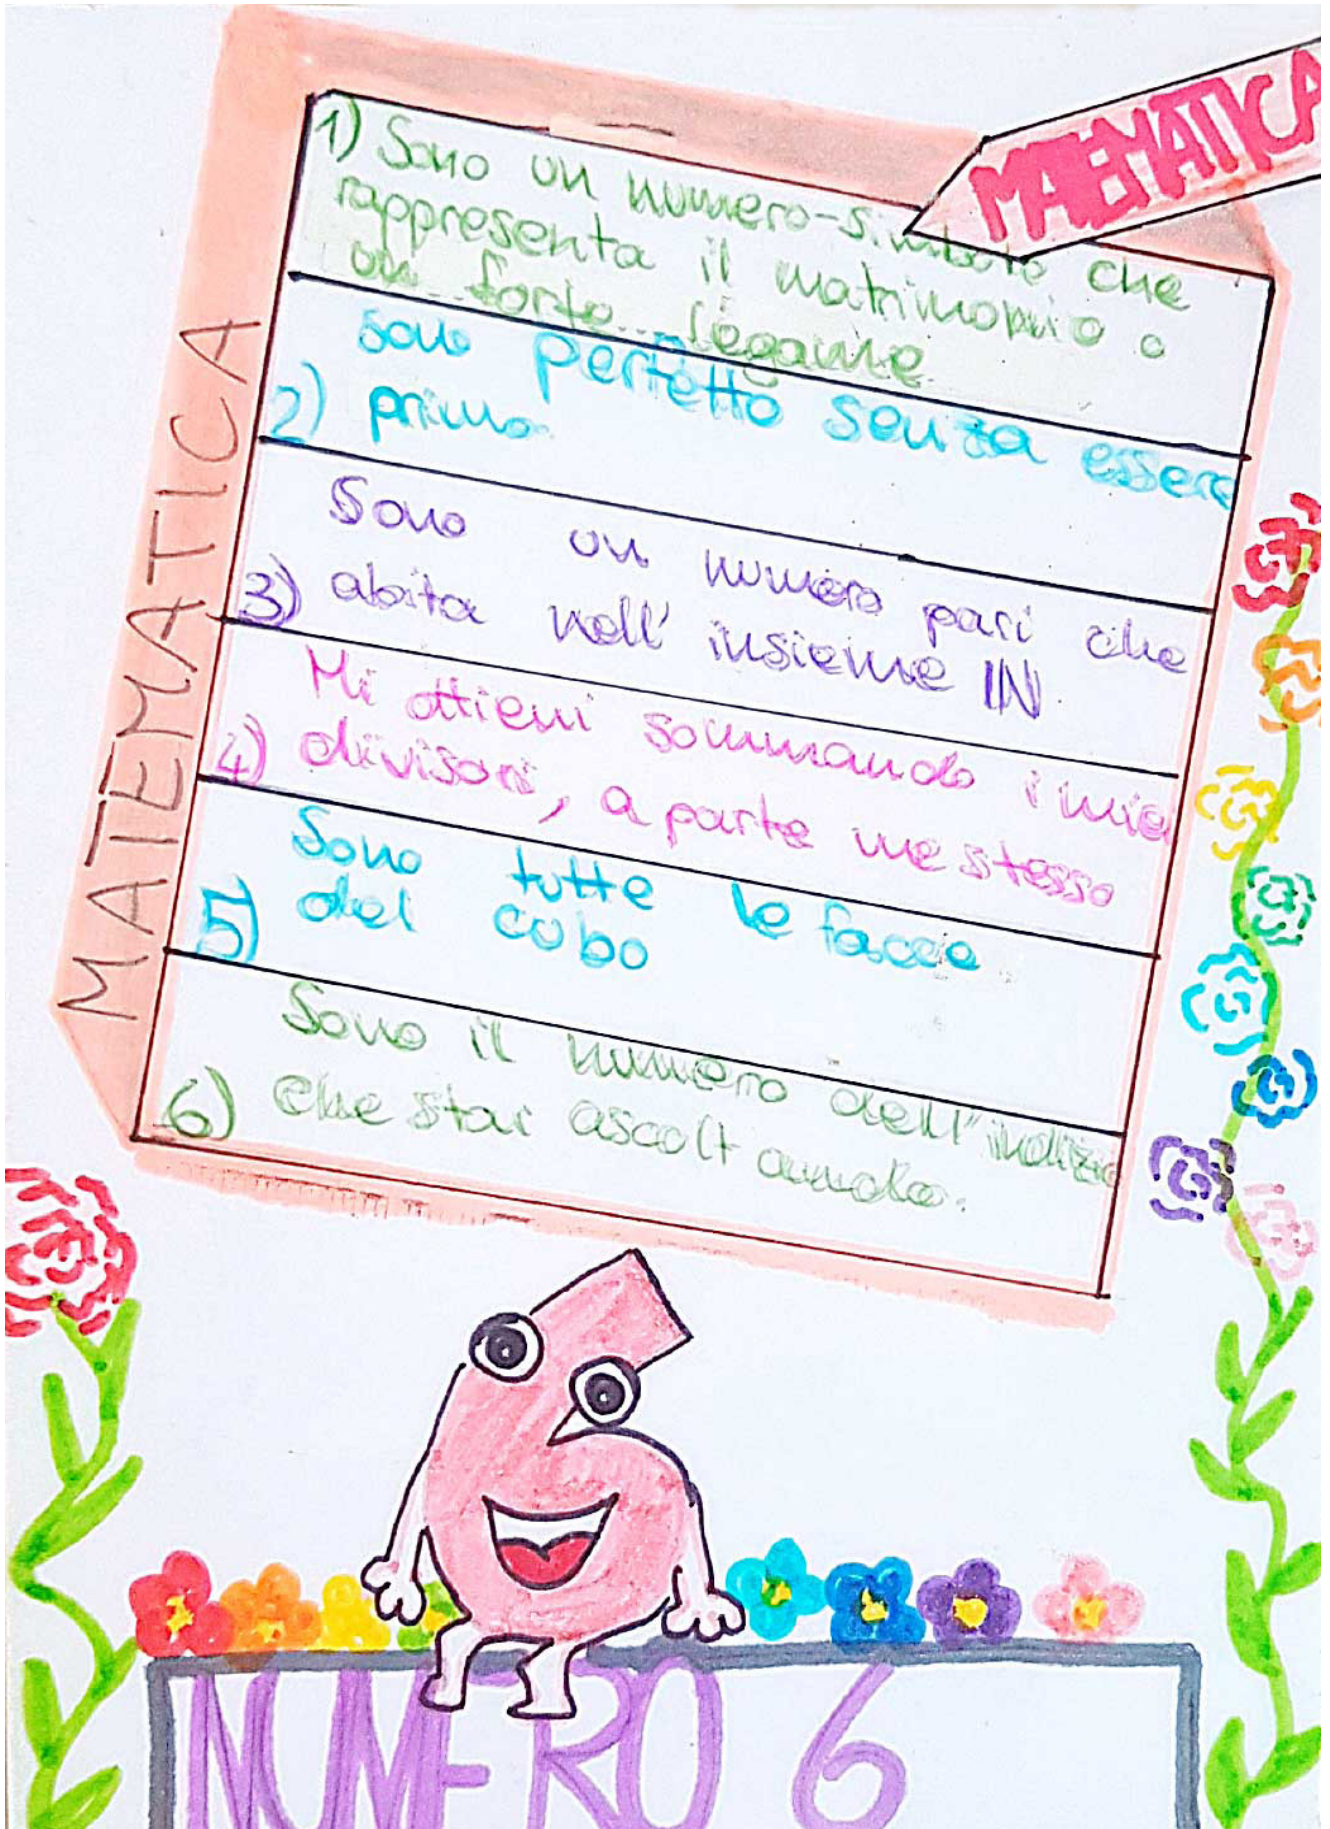 MATEMATICA
MATEMATICA
1) Sono un numero-simbolo che
rappresenta il matrimonio o
un forte legame
sono perfetto senza essere
2) primo
Sono un numero pari che
3) abita nell' insieme IN
Mi ottieni sommando i miei
4) divisori, a parte me stesso
Sono tutte le facce
5) del cubo
Sono il numero dell'indizio
6) che stai ascoltando.
NUMERO 6